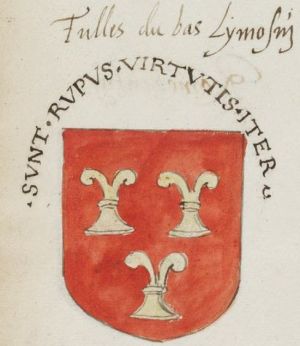 Tulles du bas Lymosin
·SVNT·RVPVS·VIRTVTIS·ITER